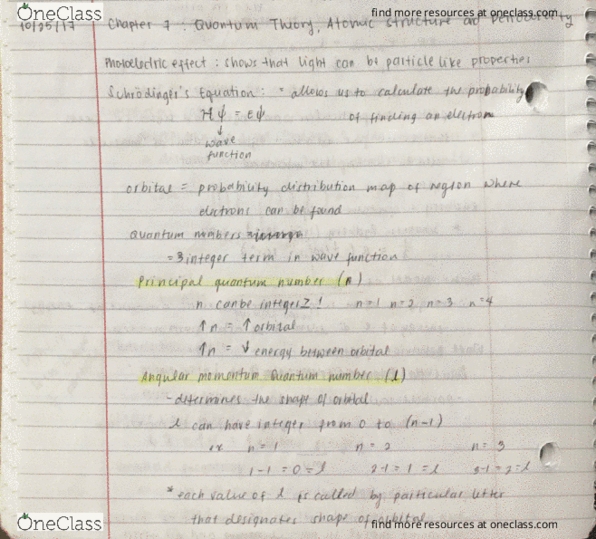 OneClass
find more resources at oneclass.com
10/25/17 Chapter 7 : Quantum Theory, Atomic structure and Periodicity
Photoelectric effect : shows that light can be particle like properties
Schrödinger's Equation : * allows us to calculate the probability
Hψ = εψ of finding an electron
wave
function
orbital = probability distribution map of region where
electrons can be found
Quantum numbers
= 3 integer term in wave function
Principal quantum number (n)
n can be integer ≥ 1 n=1 n=2 n=3 n=4
↑n = ↑orbital
↑n = ↓ energy between orbital
Angular momentum Quantum number (l)
- determines the shape of orbital
l can have integer from 0 to (n-1)
ex n = 1 n = 2 n = 3
1-1 = 0 = l 2-1 = 1 = l 3-1 = 2 = l
* each value of l is called by particular letter
that designates shape of orbital
OneClass
find more resources at oneclass.com